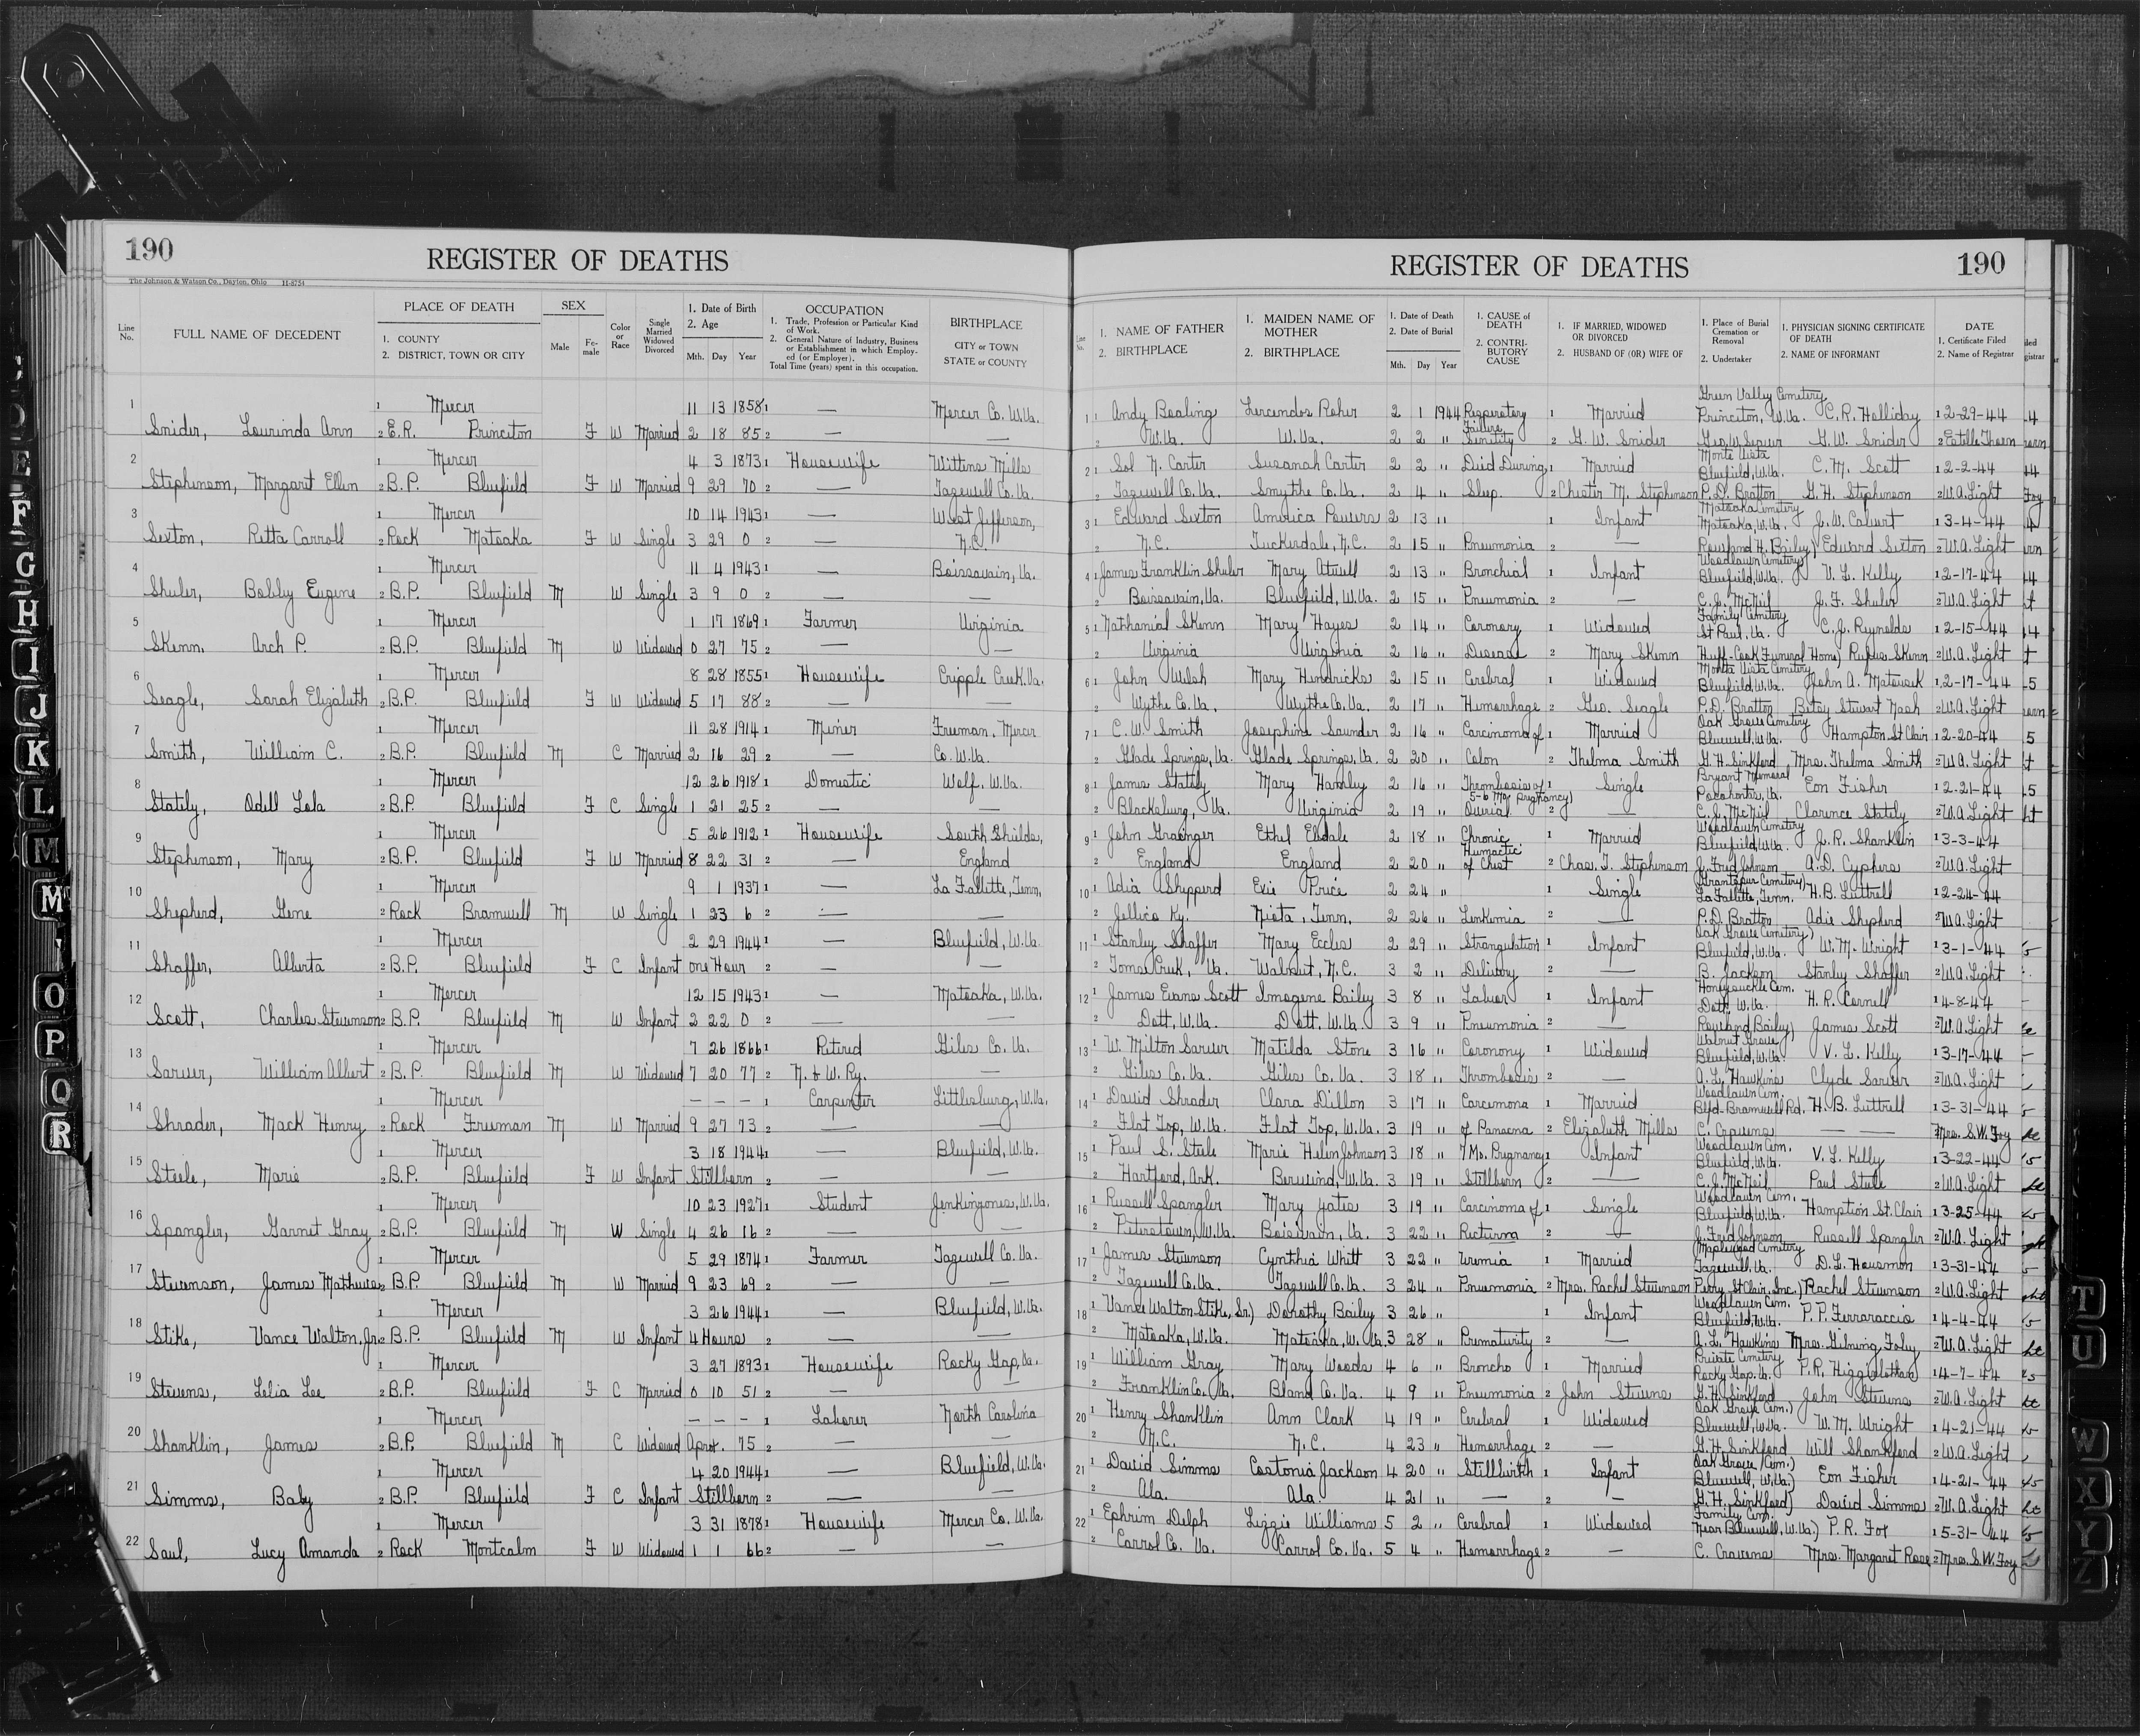 190
REGISTER OF DEATHS
The Johnson & Watson Co., Dayton, Ohio 11-8754
Line No.
FULL NAME OF DECEDENT
PLACE OF DEATH
1. COUNTY
2. DISTRICT, TOWN OR CITY
SEX
Male
Female
Color or Race
Single Married Widowed Divorced
1. Date of Birth
2. Age
Mth. Day Year
OCCUPATION
1. Trade, Profession or Particular Kind of Work.
2. General Nature of Industry, Business or Establishment in which Employed (or Employer).
Total Time (years) spent in this occupation.
BIRTHPLACE
CITY or TOWN
STATE or COUNTY
1 1 Mercer 11 13 1858 1 — Mercer Co. W.Va.
Snider, Lourinda Ann 2 E.R. Princeton F W Married 2 18 85 2 — —
2 1 Mercer 4 3 1873 1 Housewife Wittens Mills
Stephenson, Margart Ellen 2 B.P. Bluefield F W Married 9 29 70 2 — Tazewell Co. Va.
3 1 Mercer 10 14 1943 1 — West Jefferson,
Sexton, Retta Carroll 2 Rock Matoaka F W Single 3 29 0 2 — N.C.
4 1 Mercer 11 4 1943 1 — Boissavain, Va.
Shuler, Bobby Eugene 2 B.P. Bluefield M W Single 3 9 0 2 — —
5 1 Mercer 1 17 1869 1 Farmer Virginia
Skenn, Arch P. 2 B.P. Bluefield M W Widowed 0 27 75 2 — —
6 1 Mercer 8 28 1855 1 Housewife Cripple Creek, Va.
Seagle, Sarah Elizabeth 2 B.P. Bluefield F W Widowed 5 17 88 2 — —
7 1 Mercer 11 28 1914 1 Meiner Freeman, Mercer
Smith, William C. 2 B.P. Bluefield M C Married 2 16 29 2 — Co. W.Va.
8 1 Mercer 12 26 1918 1 Domestic Wolf, W.Va.
Stately, Odell Lola 2 B.P. Bluefield F C Single 1 21 25 2 — —
9 1 Mercer 5 26 1912 1 Housewife South Shields,
Stephenson, Mary 2 B.P. Bluefield F W Married 8 22 31 2 — England
10 1 Mercer 9 1 1937 1 — La Fallitte, Tenn,
Shepherd, Gene 2 Rock Bramwell M W Single 1 23 6 2 — —
11 1 Mercer 2 29 1944 1 — Bluefield, W.Va.
Shaffer, Alberta 2 B.P. Bluefield F C Infant one Hour 2 — —
12 1 Mercer 12 15 1943 1 — Matoaka, W.Va.
Scott, Charles Stevenson 2 B.P. Bluefield M W Infant 2 22 0 2 — —
13 1 Mercer 7 26 1866 1 Retired Giles Co. Va.
Sarver, William Albert 2 B.P. Bluefield M W Widowed 7 20 77 2 N. & W. Ry. —
14 1 Mercer — — — 1 Carpenter Littlesburg, W.Va.
Shrader, Mack Henry 2 Rock Freeman M W Married 9 27 73 2 — —
15 1 Mercer 3 18 1944 1 — Bluefield, W.Va.
Steele, Marie 2 B.P. Bluefield F W Infant Stillborn 2 — —
16 1 Mercer 10 23 1927 1 Student Jenkingones, W.Va.
Spangler, Garnet Gray 2 B.P. Bluefield M W Single 4 26 16 2 — —
17 1 Mercer 5 29 1874 1 Farmer Tazewell Co. Va.
Stevenson, James Mathews 2 B.P. Bluefield M W Married 9 23 69 2 — —
18 1 Mercer 3 26 1944 1 — Bluefield, W.Va.
Stike, Vance Walton, Jr. 2 B.P. Bluefield M W Infant 4 Hours 2 — —
19 1 Mercer 3 27 1893 1 Housewife Rocky Gap, Va.
Stevens, Lelia Lee 2 B.P. Bluefield F C Married 0 10 51 2 — —
20 1 Mercer — — — 1 Laborer North Carolina
Shanklin, James 2 B.P. Bluefield M C Widowed Aprox. 75 2 — —
21 1 Mercer 4 20 1944 1 — Bluefield, W.Va.
Simms, Baby 2 B.P. Bluefield F C Infant Stillborn 2 — —
22 1 Mercer 3 31 1878 1 Housewife Mercer Co. W.Va.
Saul, Lucy Amanda 2 Rock Montcalm F W Widowed 1 1 66 2 — —
REGISTER OF DEATHS
190
Line No.
1. NAME OF FATHER
2. BIRTHPLACE
1. MAIDEN NAME OF MOTHER
2. BIRTHPLACE
1. Date of Death
2. Date of Burial
Mth. Day Year
1. CAUSE of DEATH
2. CONTRIBUTORY CAUSE
1. IF MARRIED, WIDOWED OR DIVORCED
2. HUSBAND OF (OR) WIFE OF
1. Place of Burial Cremation or Removal
2. Undertaker
1. PHYSICIAN SIGNING CERTIFICATE OF DEATH
2. NAME OF INFORMANT
DATE
1. Certificate Filed
2. Name of Registrar
Green Valley Cemetery
1 1 Andy Bealing Lercendos Roher 2 1 1944 Respiratory 1 Married Princeton, W.Va. C.R. Holliday 1 2-29-44
Failure
2 W.Va. W.Va. 2 2 " Senility 2 G.W. Snider Geo. W. Seaver G.W. Snider 2 Estelle Thorn
Monte Vista
2 1 Sol N. Carter Susanah Carter 2 2 " Died During 1 Married Bluefield, W.Va. C.M. Scott 1 2-2-44
2 Tazewell Co. Va. Smythe Co. Va. 2 4 " Sleep. 2 Chester M. Stephenson P.D. Bratton G.H. Stephenson 2 W.A. Light
Matoaka Cemetery
3 1 Edward Sexton America Powers 2 13 " 1 Infant Matoaka, W.Va. J.W. Calvert 1 3-4-44
2 N.C. Tuckerdale, N.C. 2 15 " Pneumonia 2 — Rowland H. Bailey Edward Sexton 2 W.A. Light
Woodlawn Cemetery
4 1 James Franklin Shuler Mary Atwell 2 13 " Bronchial 1 Infant Bluefield, W.Va. V.L. Kelly 1 2-17-44
2 Boissavain, Va. Bluefield, W.Va. 2 15 " Pneumonia 2 — C.J. McNeil J.F. Shuler 2 W.A. Light
Family Cemetery
5 1 Nathanial Skenn Mary Hayes 2 14 " Coronary 1 Widowed St Paul, Va. C.J. Reynolds 1 2-15-44
2 Virginia Virginia 2 16 " Disease 2 Mary Skenn Huff-Cook Funeral Home) Rufus Skenn 2 W.A. Light
Monte Vista Cemetery
6 1 John Welsh Mary Hendricks 2 15 " Cerebral 1 Widowed Bluefield, W.Va. John A. Matousek 1 2-17-44
2 Wythe Co. Va. Wythe Co. Va. 2 17 " Hemorrhage 2 Geo. Seagle P.D. Bratton Betsy Stewart Nash 2 W.A. Light
Oak Grove Cemetery
7 1 C.W. Smith Josephine Saunder 2 16 " Carcinoma of 1 Married Bluewell, W.Va. Hampton St Clair 1 2-20-44
2 Glade Springs, Va. Glade Springs, Va. 2 20 " Colon 2 Thelma Smith G.H. Sinkford Mrs. Thelma Smith 2 W.A. Light
Bryant Memorial
8 1 James Stately Mary Hamley 2 16 " Thrombosis of 1 Single Pocahontas, Va. Eon Fisher 1 2-21-44
5-6 Mo. pregnancy)
2 Blacksburg, Va. Virginia 2 19 " 2 — C.J. McNeil Clarence Stately 2 W.A. Light
Woodlawn Cemetery
9 1 John Grainger Ethel Elsdale 2 18 " Chronic 1 Married Bluefield, W.Va. J.R. Shanklin 1 3-3-44
2 England England 2 20 " of Chest 2 Chas. T. Stephenson J. Fred Johnson A.D. Cyphers 2 W.A. Light
10 1 Adia Shepperd Exie Price 2 24 " 1 Single La Fallitte, Tenn. H.B. Luttrell 1 2-24-44
2 Jellico Ky. Niota, Tenn. 2 26 " Lenkimia 2 — P.D. Bratton Adie Shepherd 2 W.A. Light
Oak Grove Cemetery)
11 1 Stanley Shaffer Mary Eccles 2 29 " Strangulation 1 Infant Bluefield, W.Va. W.M. Wright 1 3-1-44
2 Toms Creek, Va. Walnut, N.C. 3 2 " Delivery 2 — B. Jackson Stanley Shaffer 2 W.A. Light
Honeysuckle Cem.
12 1 James Evans Scott Imogene Bailey 3 8 " Lobar 1 Infant Dott, W.Va. H.R. Cornell 1 4-8-44
2 Dott, W.Va. Dott, W.Va. 3 9 " Pneumonia 2 — Rowland Bailey) James Scott 2 W.A. Light
Walnut Grove
13 1 W. Milton Sarver Matilda Stone 3 16 " Coronony 1 Widowed Bluefield, W.Va. V.L. Kelly 1 3-17-44
2 Giles Co. Va. Giles Co. Va. 3 18 " Thrombosis 2 — A.L. Hawkins Clyde Sarver 2 W.A. Light
Woodlawn Cem.
14 1 David Shrader Clara Dillon 3 17 " Carcimona 1 Married Blfd-Bramwell Rd. H.B. Luttrell 1 3-31-44
2 Flat Top, W.Va. Flat Top, W.Va. 3 19 " of Panacna 2 Elizabeth Mills C. Cravens — — 2 Mrs. S.W. Foy
Woodlawn Cem.
15 1 Paul S. Steele Marie Helen Johnson 3 18 " 7 Mo. Pregnancy 1 Infant Bluefield, W.Va. V.L. Kelly 1 3-22-44
2 Hartford, Ark. Berwind, W.Va. 3 19 " Stillborn 2 — C.J. McNeil Paul Steele 2 W.A. Light
Woodlawn Cem.
16 1 Russell Spangler Mary Yates 3 19 " Carcinoma of 1 Single Bluefield, W.Va. Hamption St. Clair 1 3-25-44
2 Peterstown, W.Va. Boissvain, Va. 3 22 " Recturm 2 — J. Fred Johnson Russell Spangler 2 W.A. Light
Maplewood Cemetery
17 1 James Stevenson Cynthia Whitt 3 22 " Uremia 1 Married Tazewell, Va. D.L. Housmon 1 3-31-44
2 Tazewell Co. Va. Tazewell Co. Va. 3 24 " Pneumonia 2 Mrs. Rachel Stevenson Perry St Clair, Inc.) Rachel Stevenson 2 W.A. Light
Woodlawn Cem.
18 1 Vance Walton Stike, Sr.) Dorothy Baily 3 26 " 1 Infant Bluefield, W.Va. P.P. Ferraraccio 1 4-4-44
2 Matoaka, W.Va. Matoaka, W.Va. 3 28 " Prematurity 2 — A.L. Hawkins Mrs. Gilning Foley, 2 W.A. Light
Private Cemetery
19 1 William Gray Mary Woods 4 6 " Broncho 1 Married Rocky Gap, Va. P.R. Higginbothan 1 4-7-44
2 Franklin Co. Va. Bland Co. Va. 4 9 " Pneumonia 2 John Stevens G.H. Sinkford John Stevens 2 W.A. Light
Oak Grove Cem.)
20 1 Henry Shanklin Ann Clark 4 19 " Cerebral 1 Widowed Bluewell, W.Va. W.M. Wright 1 4-21-44
2 N.C. N.C. 4 23 " Hemorrhage 2 — G.H. Sinkford Will Shankford 2 W.A. Light
Oak Grove (Cem.)
21 1 David Simms Costonia Jackson 4 20 " Stillbirth 1 Infant Bluewell, W.Va.) Eon Fisher 1 4-21-44
2 Ala. Ala. 4 21 " — 2 — G.H. Sinkford) David Simms 2 W.A. Light
Family Cem.
22 1 Ephrim Delph Lizzie Williams 5 2 " Cerebral 1 Widowed Near Bluewell, W.Va.) P.R. Fox 1 5-31-44
2 Carrol Co. Va. Carrol Co. Va. 5 4 " Hemorrhage 2 — C. Cravens Mrs. Margaret Rose 2 Mrs. S.W. Foy
E
F
G
H
I
J
K
L
M
M
O
P
Q
R
T
U
W
X
Y
Z